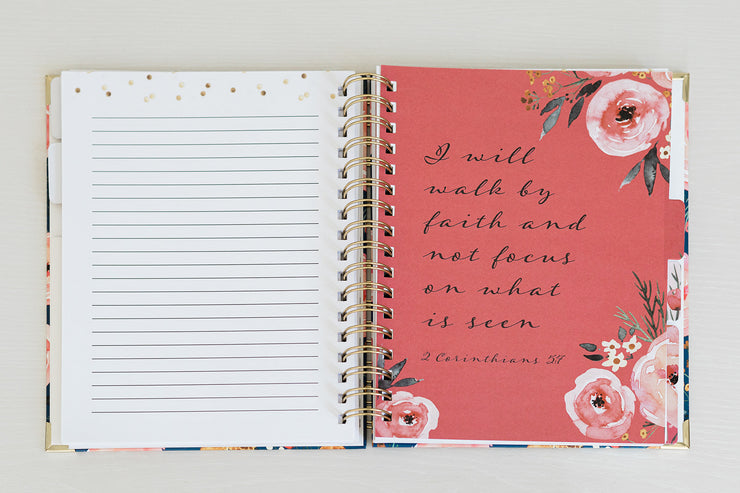 I will
walk by
faith and
not focus
on what
is seen
2 Corinthians 5:7